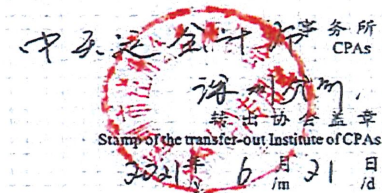 中天运会计师事务所
CPAs
深圳分所
转出协会盖章
Stamp of the transfer-out Institute of CPAs
2021年 6月 21日
/y /m /d